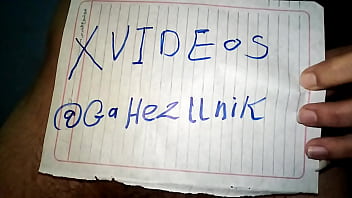 XVIDEOS
@GaHezllnik